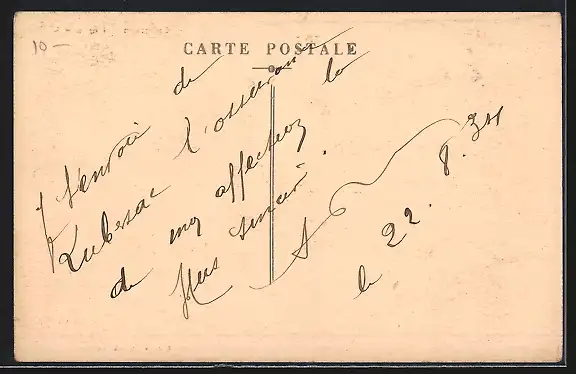 10 —
CARTE POSTALE
J'envoie de
Lubersac l'assurance
de mon affection la
plus sincère.
le 22. 8. 34